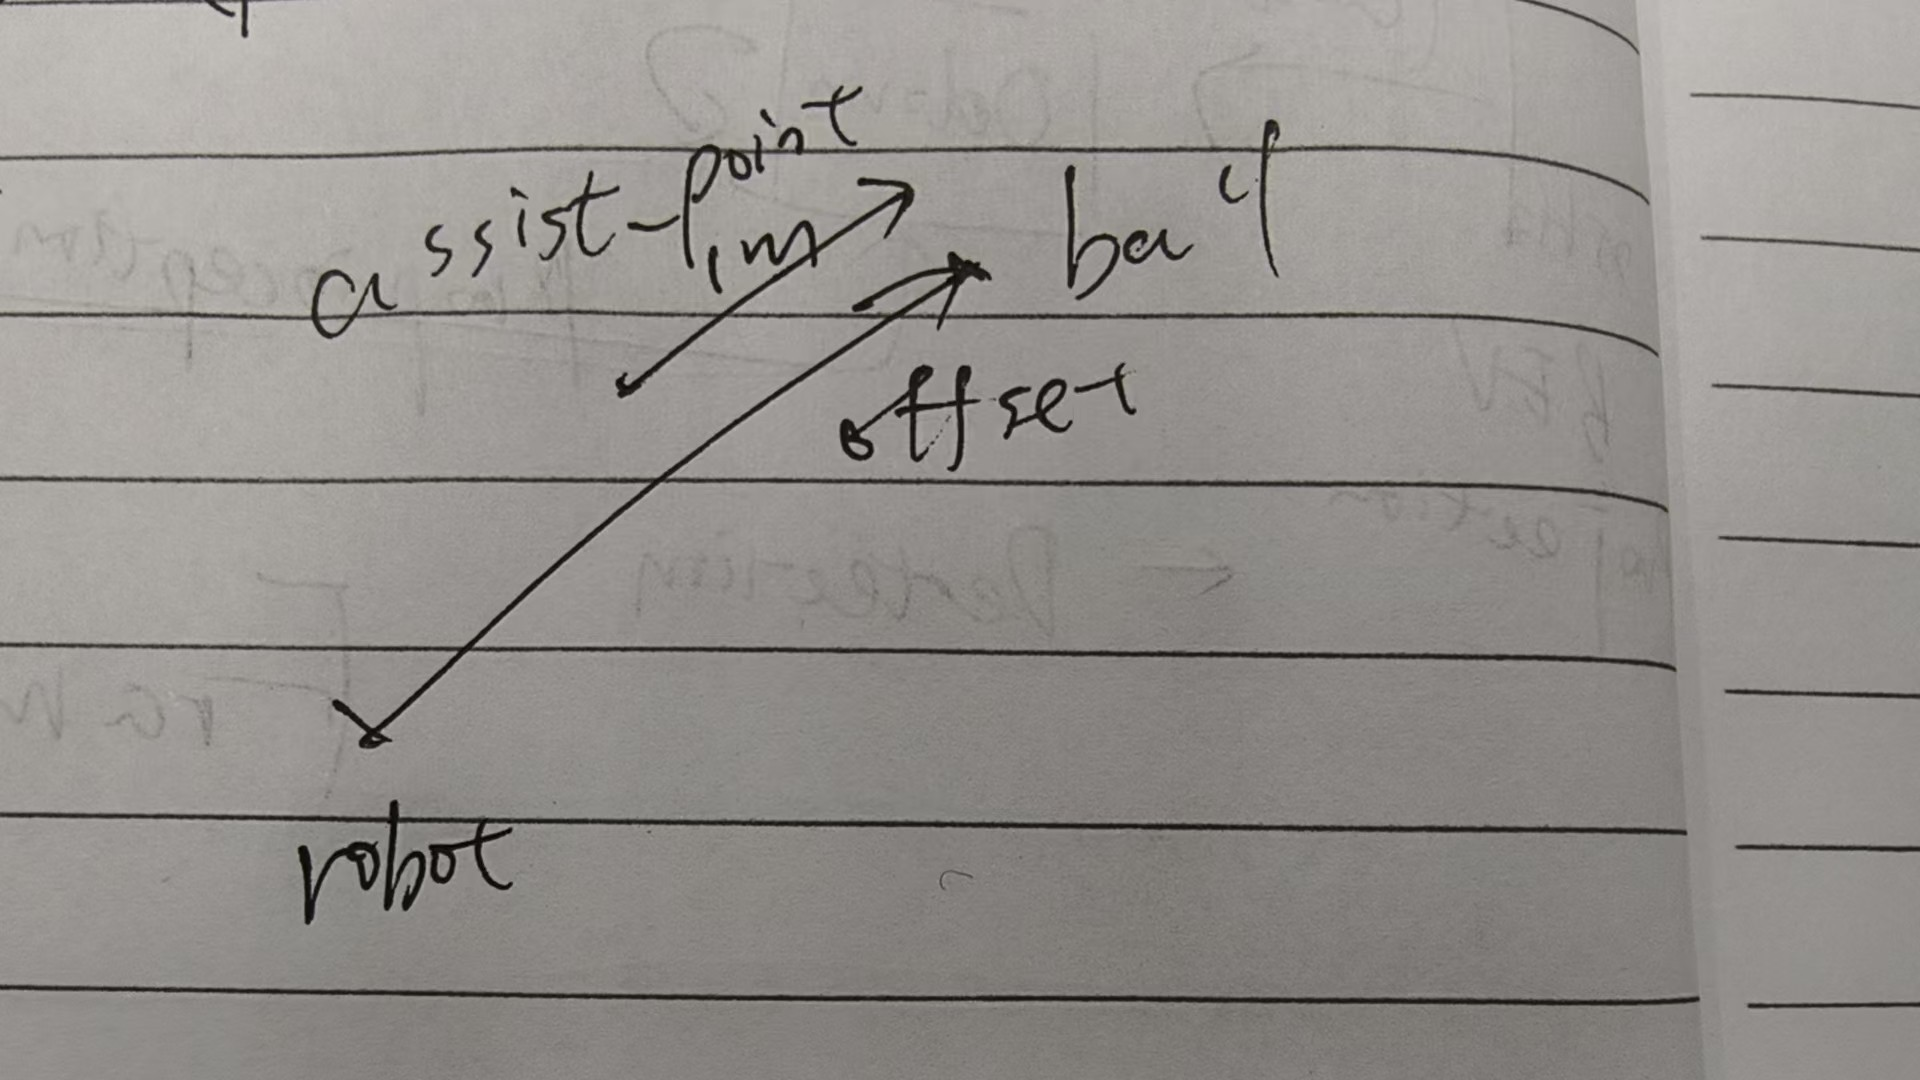 assist-point
1m
ball
offset
robot